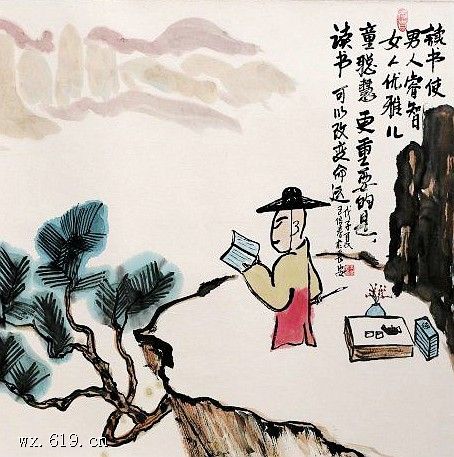 读书使
男人睿智
女人优雅儿
童聪慧更重要的是、
读书可以改变命运
戊子夏
长安
wx.619.cn